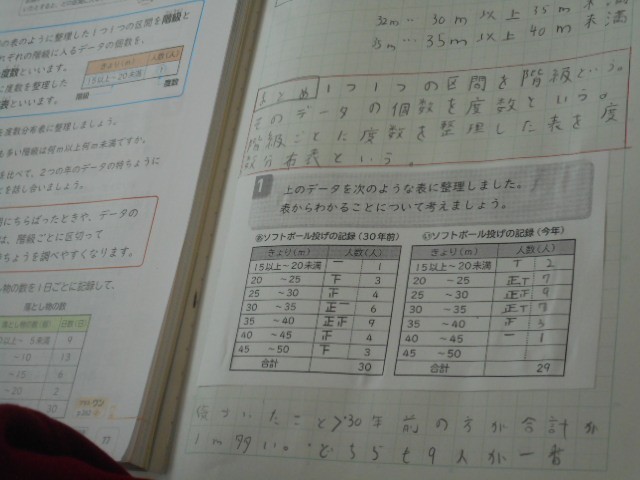 の表のように整理した1つ1つの区間を階級と
れぞれの階級に入るデータの個数を、
度数といいます。
に度数を整理した
表といいます。
きょり(m) 人数(人)
15以上~20未満 1
階級 度数
を度数分布表に整理しましょう。
も多い階級は何m以上何m未満ですか。
を比べて、2つの年のデータの特ちょうに
とを話し合いましょう。
にちらばったときや、データの
は、階級ごとに区切って
ちょうを調べやすくなります。
し物の数を1日ごとに記録して、
落とし物の数
日数(日)
5未満 9
~10 13
~15 6
~20 2
30
77
30m以上35m未満
35m以上40m未満
まとめ 1つ1つの区間を階級という。
そのデータの個数を度数という。
階級ごとに度数を整理した表を度
数分布表という。
1 上のデータを次のような表に整理しました。
表からわかることについて考えましょう。
あソフトボール投げの記録(30年前)
きょり(m) 人数(人)
15以上~20未満 一 1
20 ~25 下 3
25 ~30 正 4
30 ~35 正一 6
35 ~40 正正 9
40 ~45 正 4
45 ~50 下 3
合計 30
いソフトボール投げの記録(今年)
きょり(m) 人数(人)
15以上~20未満 T 2
20 ~25 正T 7
25 ~30 正正 9
30 ~35 正T 7
35 ~40 下 3
40 ~45 一 1
45 ~50
合計 29
いたこと 30年前の方が合計が
1m多い。どちらも9人が一番